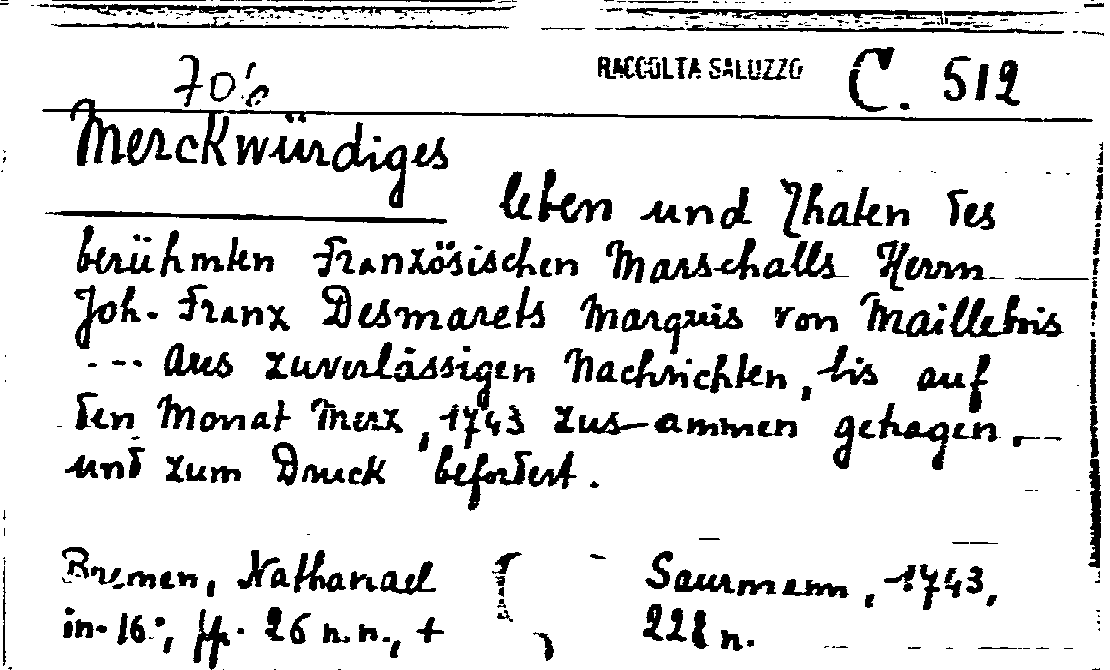 706 RACCOLTA SALUZZO C. 512
Merckwürdiges
leben und Thaten des
berühmten Französischen Marschalls Herrn
Joh. Franz Desmarets Marquis von Maillebois
--- aus zuverlässigen Nachrichten, bis auf
den Monat Merz, 1743 zus-ammen getragen.
und zum Druck befordert.
Bremen, Nathanael Saurmann, 1743,
in-16°, pp. 26 n.n., + 228 n.